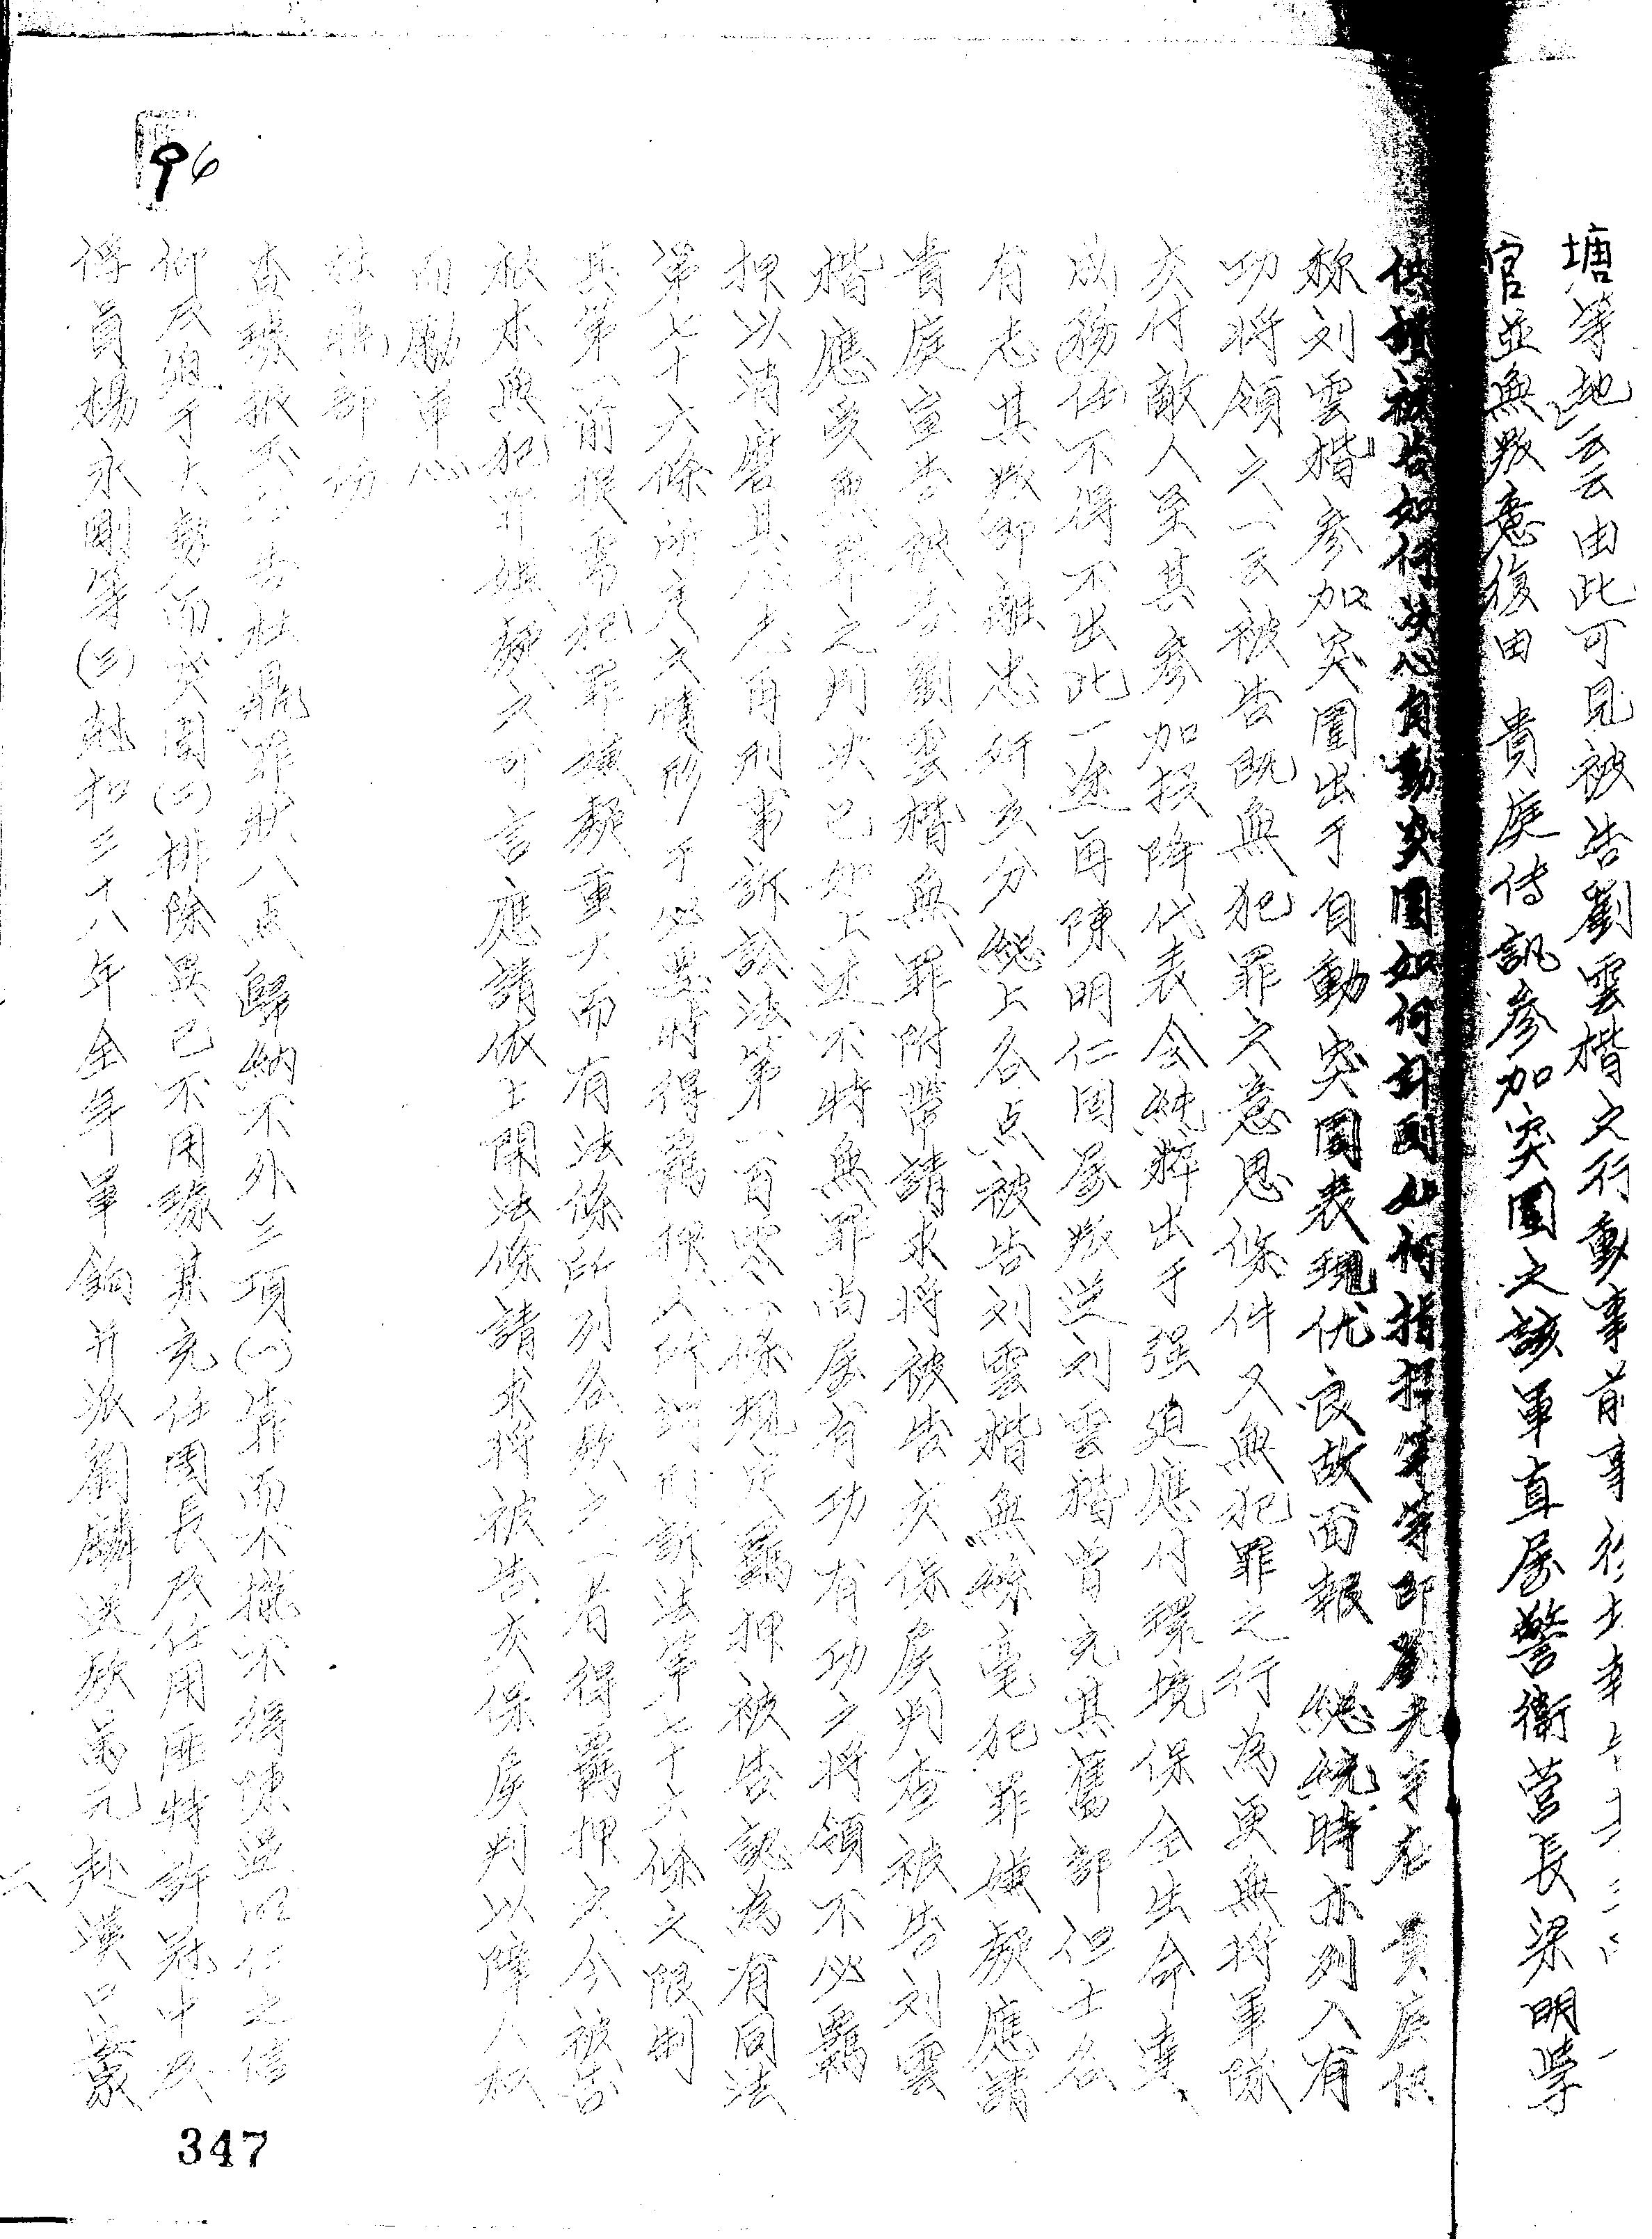 塘等地云云由此可見被告劉雲楷之行動事前事後
官並無叛意復由 貴庭傳訊參加突圍之該軍直屬警衛营長梁明學
供證被告如何决心自動突圍如何計劃如何指揮 在 貴庭供
称刘雲楷參加突圍出于自動突圍表現优良故面報 総統時亦列入有
功將領之一云被告既無犯罪之意思條件又無犯罪之行為更無將軍隊
交付敵人至其參加投降代表会純粹出于强迫應付環境保全生命達
成務任不得不出此一途再陳明仁固屬叛逆刘雲楷曾充其舊部但士各
有志其叛卿離忠奸玄分総上各点被告刘雲楷無絲毫犯罪嫌疑應請
貴庭宣告被告劉雲楷無罪附帶請求將被告交保候判查被告刘雲
楷應受無罪之判决已如上述不特無罪尚屬有功有功之將領不必羈
押以消磨其 志再刑事訴訟法第一百零一條規定羈押被告認為有同法
第七十六條所定之情形于必要時得羈押之所謂刑訴法第七十六條之限制
其第一前提需犯罪嫌疑重大而有法條所列各款之一者得羈押之今被告
既未無犯罪嫌疑之可言應請依上開法條請求將被告交保候判以障人权
而勵軍心
杜鼎部份
查 杜鼎罪狀八点歸納不外三項(一)靠而不攏不得陳逆明仁之信
仰及迫于大勢而突圍(二)排除異己不用 某充任團長及任用匪特許冠中及
得員楊永剛等(三)尅扣三十八年全年軍餉并派劉麟送款 元赴漢口
347
96